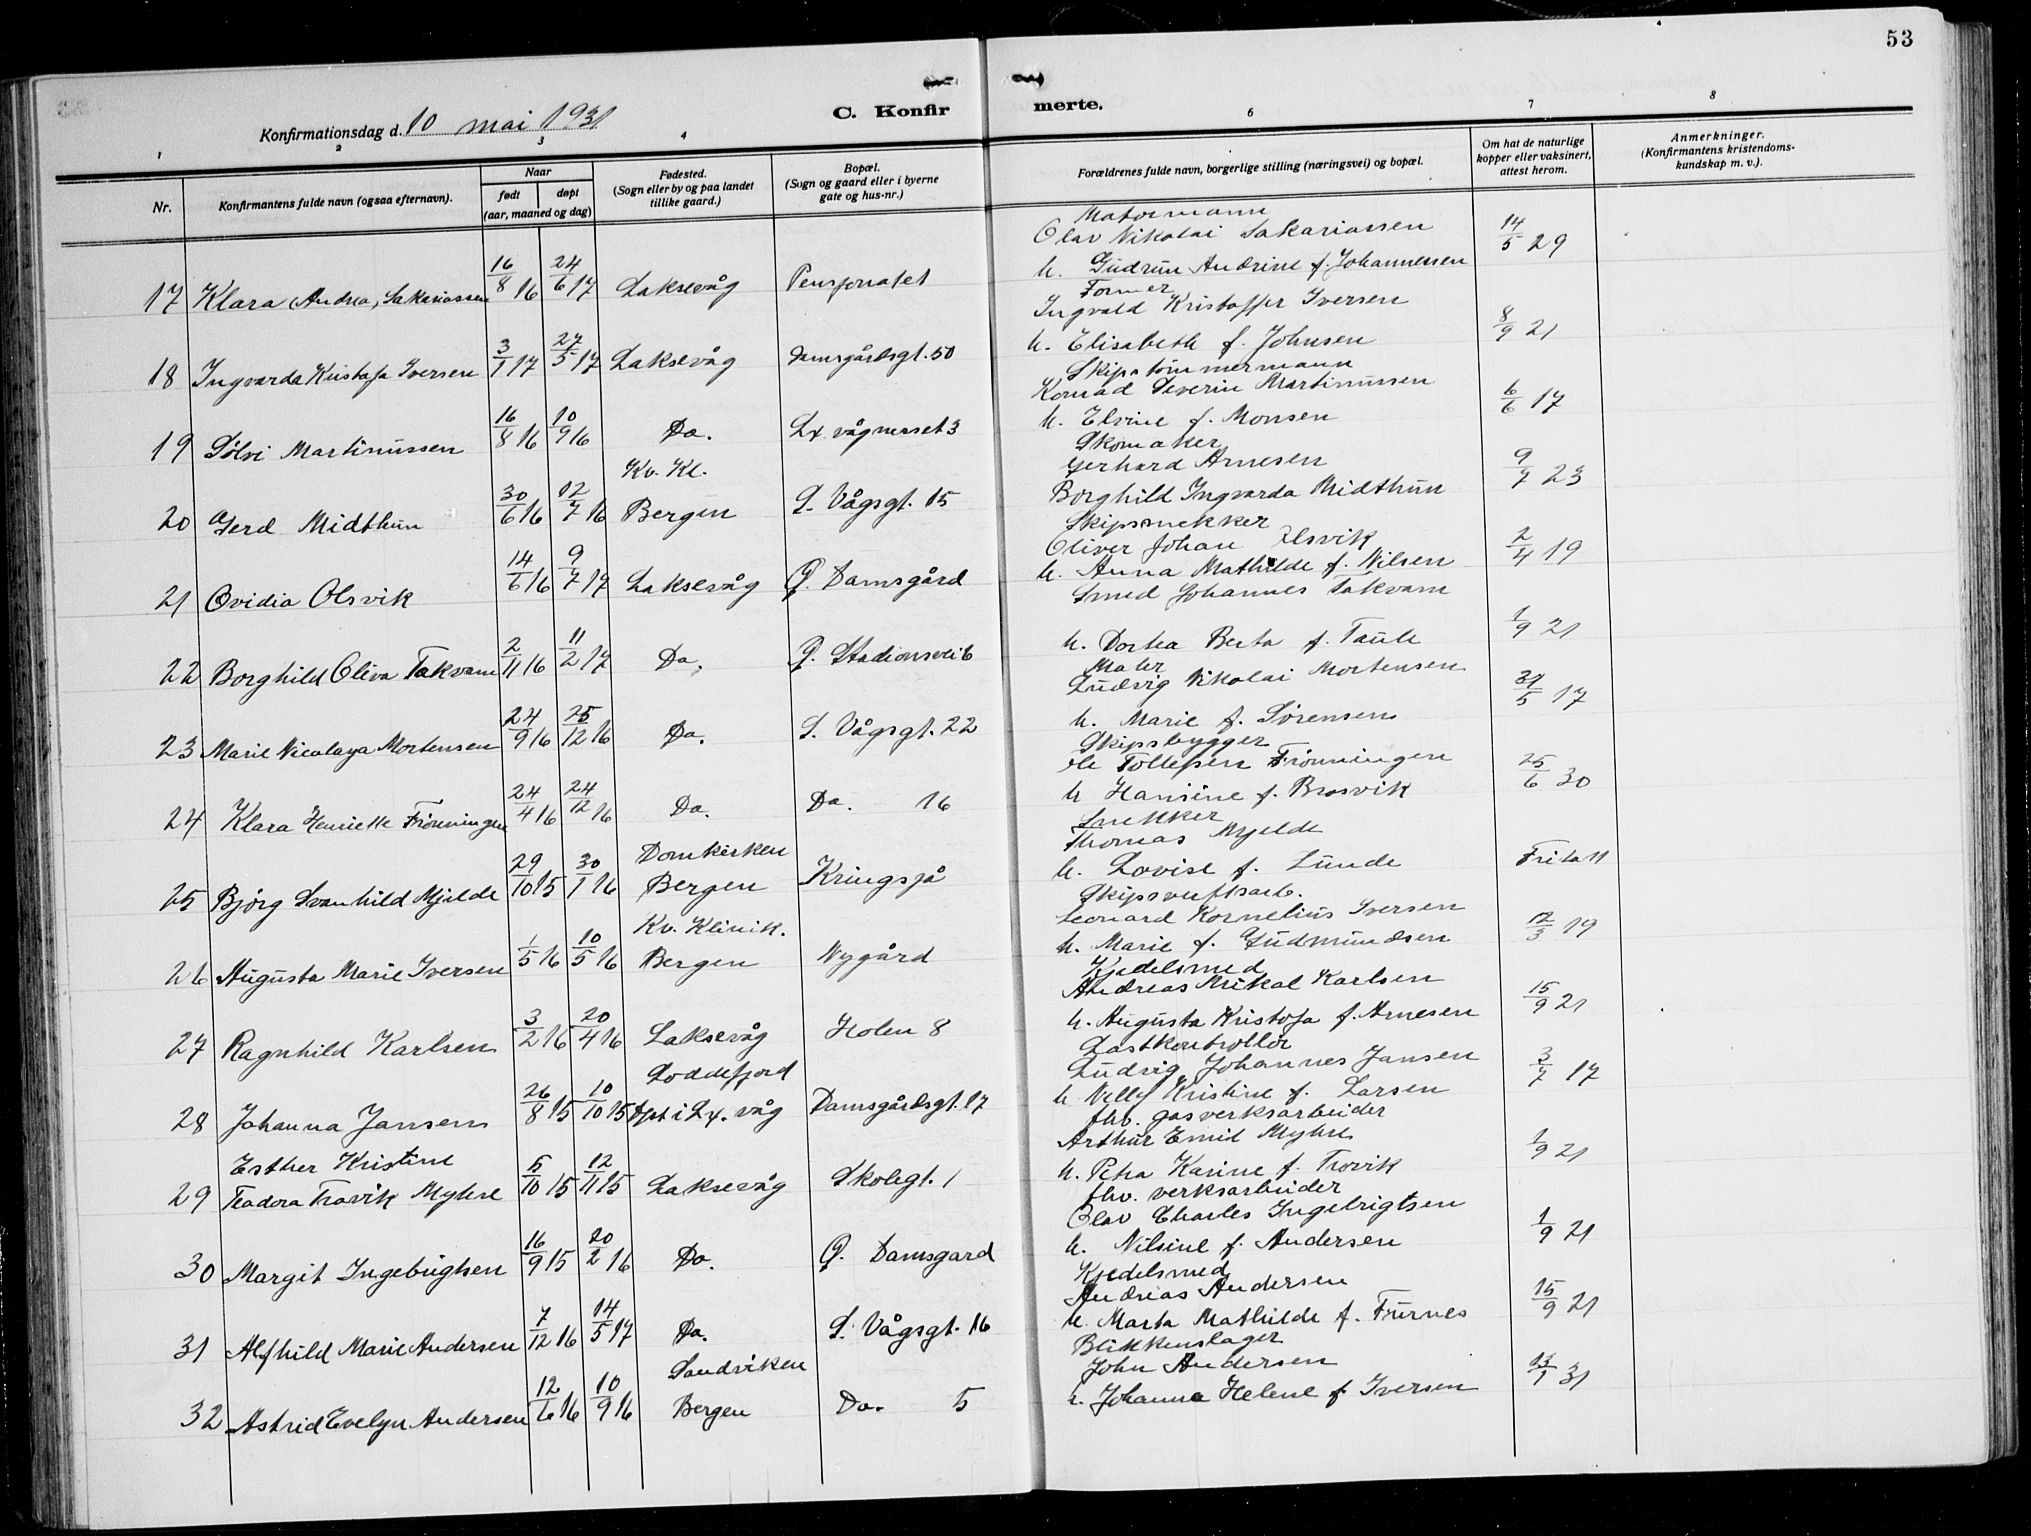 53
Konfirmationsdag d. 10 mai 1931
C. Konfir merte.
1 2 3 4 6 7 8
Nr.
Konfirmantens fulde navn (ogsaa efternavn).
Naar
født døpt
(aar, maaned og dag)
Fødested.
(Sogn eller by og paa landet
tillike gaard.)
Bopæl.
(Sogn og gaard eller i byerne
gate og hus-nr.)
Forældrenes fulde navn, borgerlige stilling (næringsvei) og bopæl.
Om hat de naturlige
kopper eller vaksinert,
attest herom.
Anmerkninger.
(Konfirmantens kristendoms-
kundskap m. v.).
Matormann
Olav Nikolai Sakariassen 14/5 29
h. Gudrun Andrine f. Johannessen
17 Klara Andrea, Sakariassen 16/8 16 24/6 17 Laksevåg Pensjonatet
Former
Ingvald Kristoffer Iversen
h. Elisabeth f. Johnsen 8/9 21
18 Ingvarda Kristofa Iversen 3/1 17 27/5 17 Laksevåg Damsgårdsgt. 50
Skipstømmermann
Konrad Severin Martinussen
h. Elvine f. Monsen 6/6 17
19 Sølvi Martinussen 16/8 16 10/9 16 Do. Lx vågnesset 3
Skomaker
Gerhard Arnesen
Kv. Kl.
Borghild Ingvarda Midthun 9/7 23
20 Gerd Midthun 30/6 16 12/7 16 Bergen S. Vågsgt. 15
Skipssnekker
Oliver Johan Olsvik
h. Anna Mathilde f. Nilsen 2/4 19
21 Ovidia Olsvik 14/6 16 9/7 17 Laksevåg G. Damsgård
Smed Johannes Takvam
h. Dortea Berta f. Taule 1/9 21
22 Borghild Oliva Takvam 2/11 16 11/2 17 Do. G. Stadionsvei 6
Maler
Ludvig Nikolai Mortensen
h. Marie f. Sørensen 31/5 17
23 Marie Nicolaya Mortensen 24/9 16 25/12 16 Do. S. Vågsgt. 22
Skipsbygger
Ole Tollefsen Frönningen
h Hansine f. Brosvik 25/6 30
24 Klara Henriette Frönningen 24/4 16 24/12 16 Do. Do. 16
Snekker
Thomas Mjelde
h. Lovise f. Lunde Fritatt
Domkirken
25 Bjørg Svanhild Mjelde 29/10 15 30/1 16 Bergen Kringsjå
Skipsverftsarb.
Leonard Kornelius Iversen
h. Marie f. Gudmundsen 12/3 19
Kv. Klinik.
26 Augusta Marie Iversen 1/5 16 10/5 16 Bergen Nygård
Kjedelsmed
Andreas Mikal Karlsen
h. Augusta Kristofa f. Arnesen 15/9 21
27 Ragnhild Karlsen 3/2 16 20/4 16 Laksevåg Holen 8
Lastkontrollör
Ludvig Johannes Jansen
h Nelly Kristine f. Larsen 3/7 17
Loddefjord
28 Johanna Jansen 26/8 15 10/10 15 døpt i Lx. våg Damsgårdsgt. 17
fhv. gasverksarbeider
Arthur Emil Myhre
h. Petra Karine f. Trovik 1/9 21
Esther Kristine
29 Teodora Trovik Myhre 5/10 15 12/11 15 Laksevåg Skolegt. 1
fhv. verksarbeider
Olav Charles Ingebrigtsen
h. Nilsine f. Andersen 1/9 21
30 Margit Ingebrigtsen 16/9 15 20/2 16 Do. G. Damsgard
Kjedelsmed
Andreas Andersen
h. Marta Mathilde f. Furnes 15/9 21
31 Alfhild Marie Andersen 7/12 16 14/5 17 Do. S. Vågsgt. 16
Blikkenslager
John Andersen
h. Johanna Helene f. Iversen 13/1 31
Sandviken
32 Astrid Evelyn Andersen 12/6 16 10/9 16 Bergen Do. 5